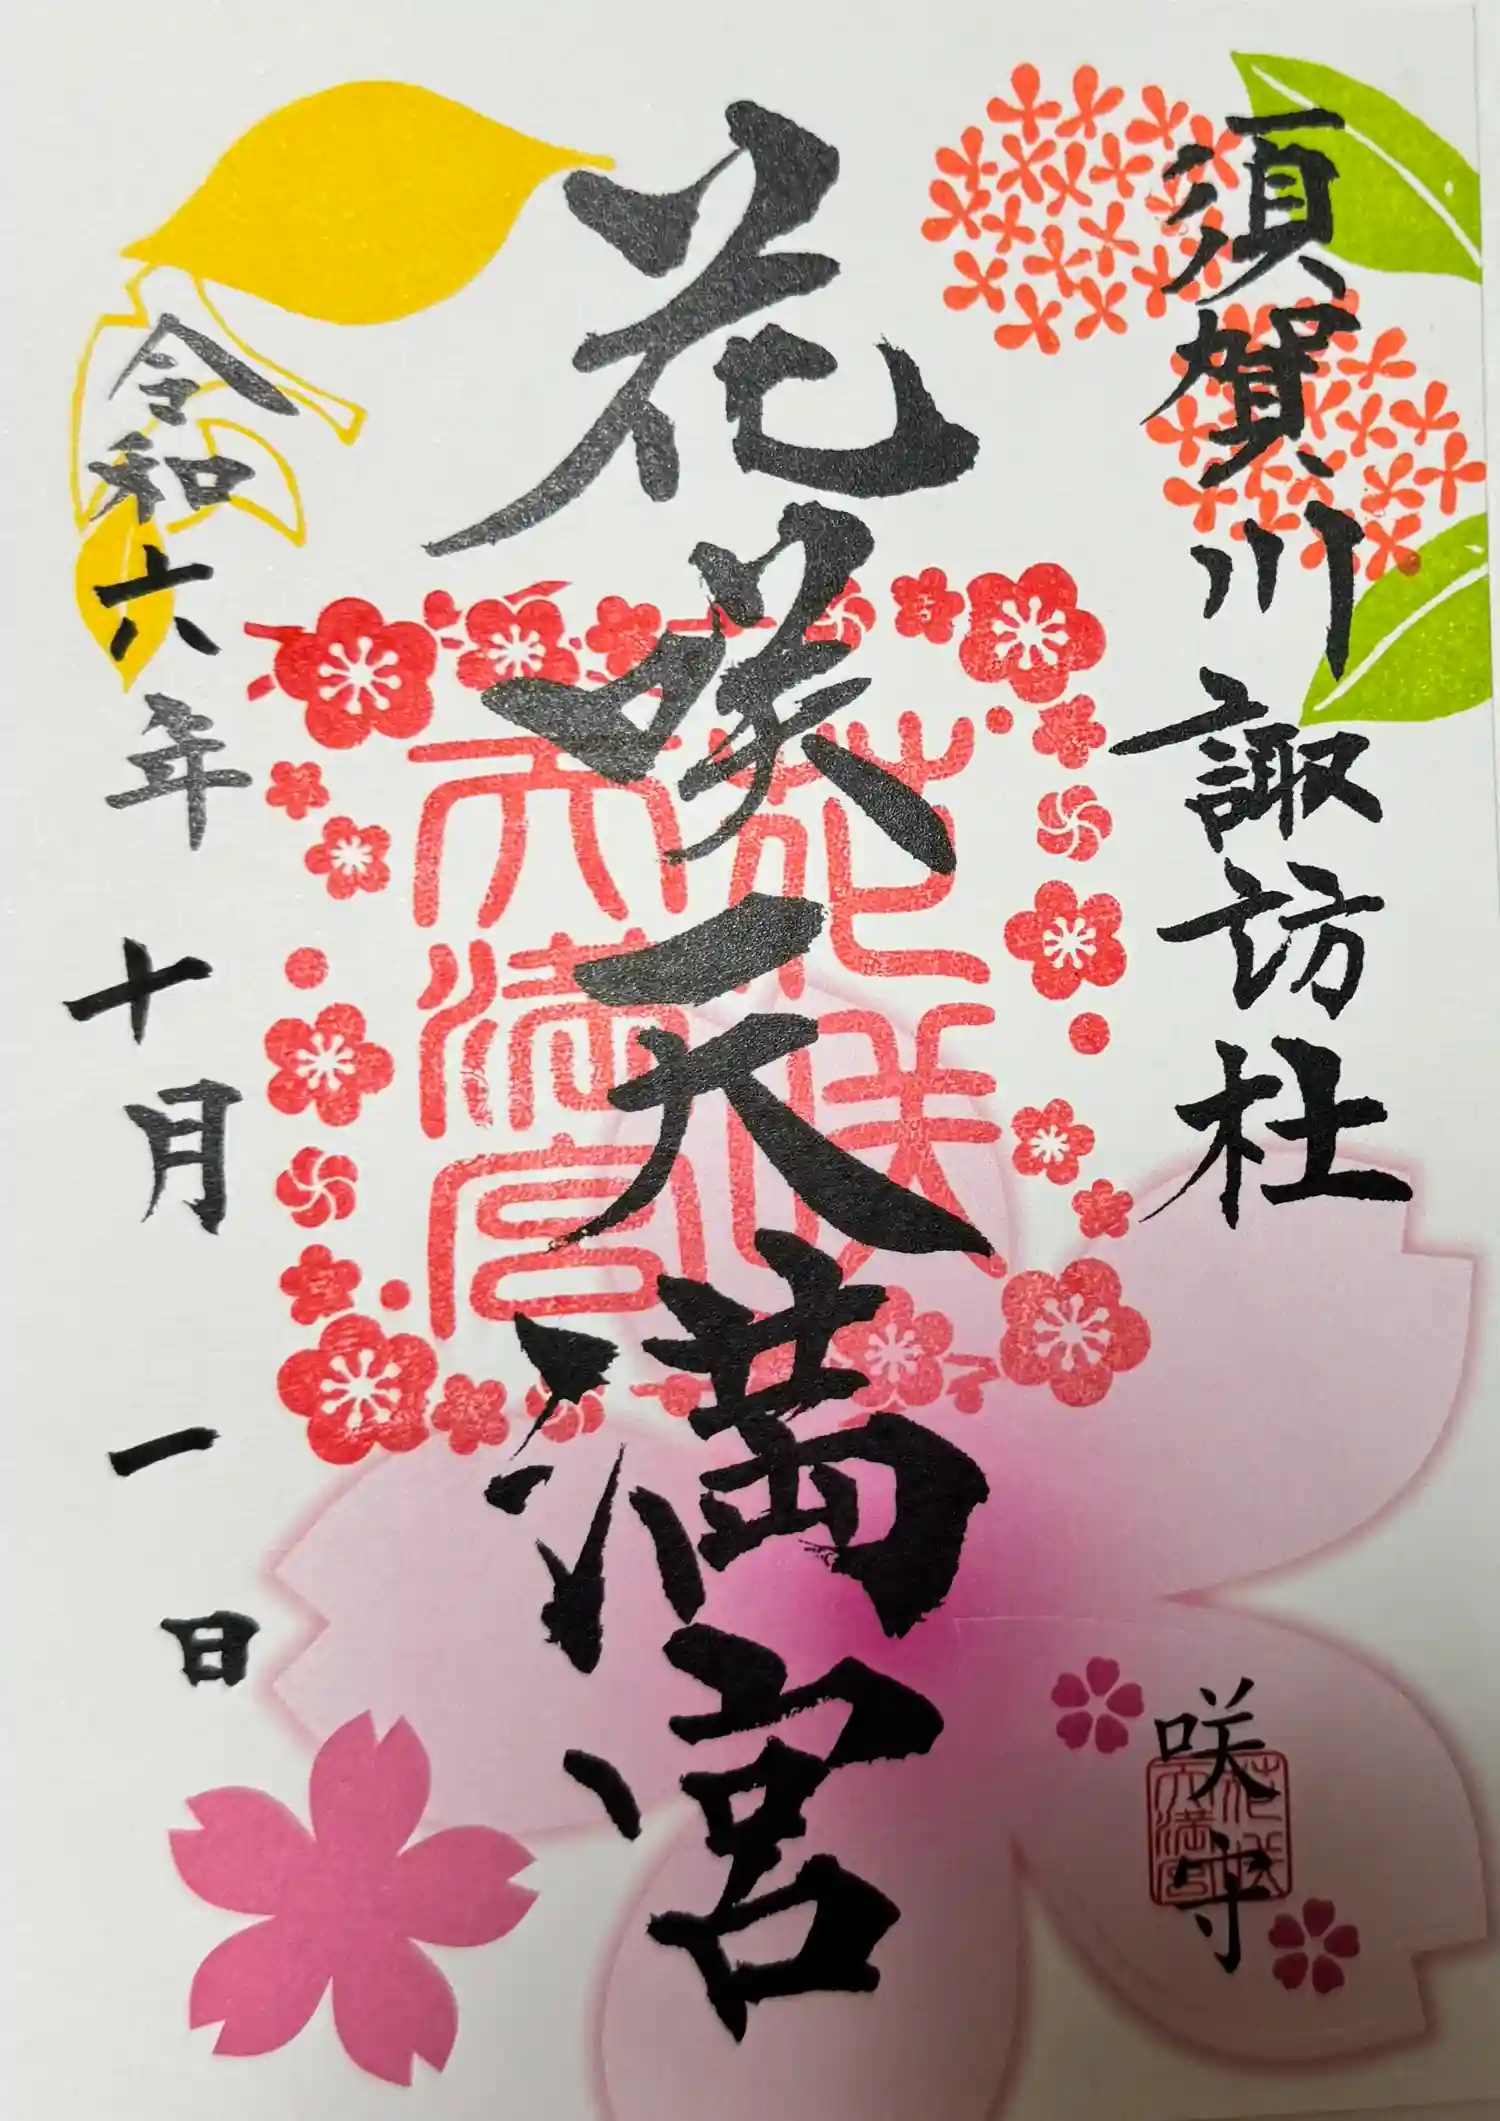 須賀川諏訪社
花咲天満宮
花咲
天満宮
令和六年十月一日
咲守
花咲
天満宮